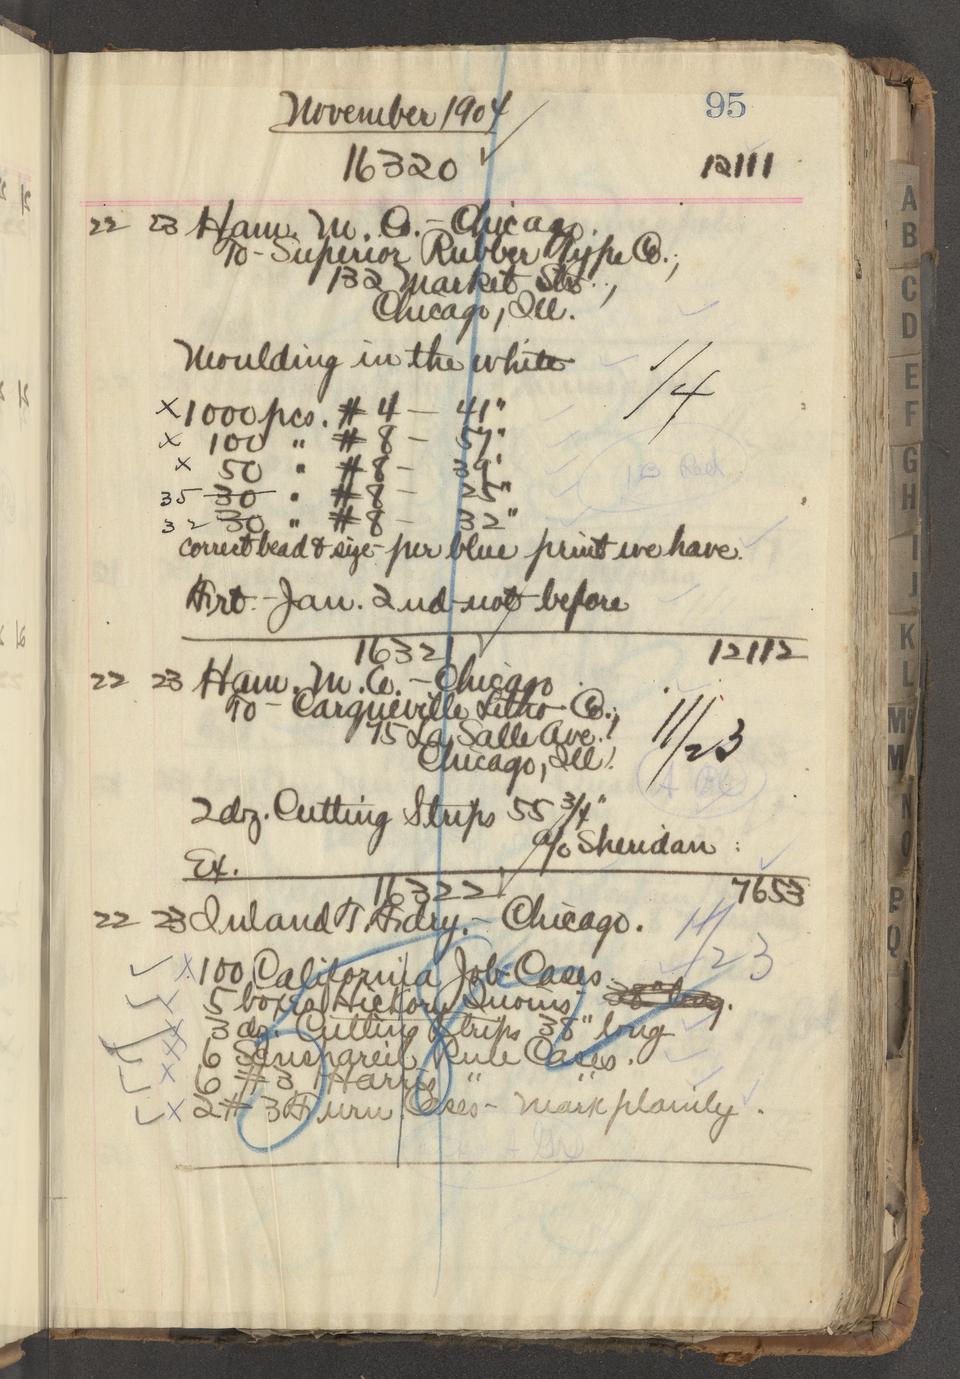 November 1904
95
16320
12111
22 23 Ham. M. Co. - Chicago.
To - Superior Rubber Type Co.,
132 Market Str.,
Chicago, Ill.
Moulding in the white
1/4
x 1000 pcs. # 4 - 41"
x 100 " # 8 - 57"
x 50 " # 8 - 39"
35 30 " # 8 - 25"
32 30 " # 8 - 32"
correct bead & size - per blue print we have.
Frt. - Jan. 2nd - not before
16321
12112
22 23 Ham. M. Co. - Chicago
To - Carqueville Litho Co.,
75 La Salle Ave.,
Chicago, Ill.
11/23
2 doz. Cutting Strips 55 3/4"
a/c Sheridan
Ex.
16322
7653
22 23 Inland T. Fdry. - Chicago.
11/23
x 100 California Job Cases
5 boxes Hickory Quoins
x 3 dz. Cutting Strips 38" long
x 6 Sanspareil Rule Cases.
x 6 # 3 Harris " "
x 2 # 3 Cases - Mark plainly.